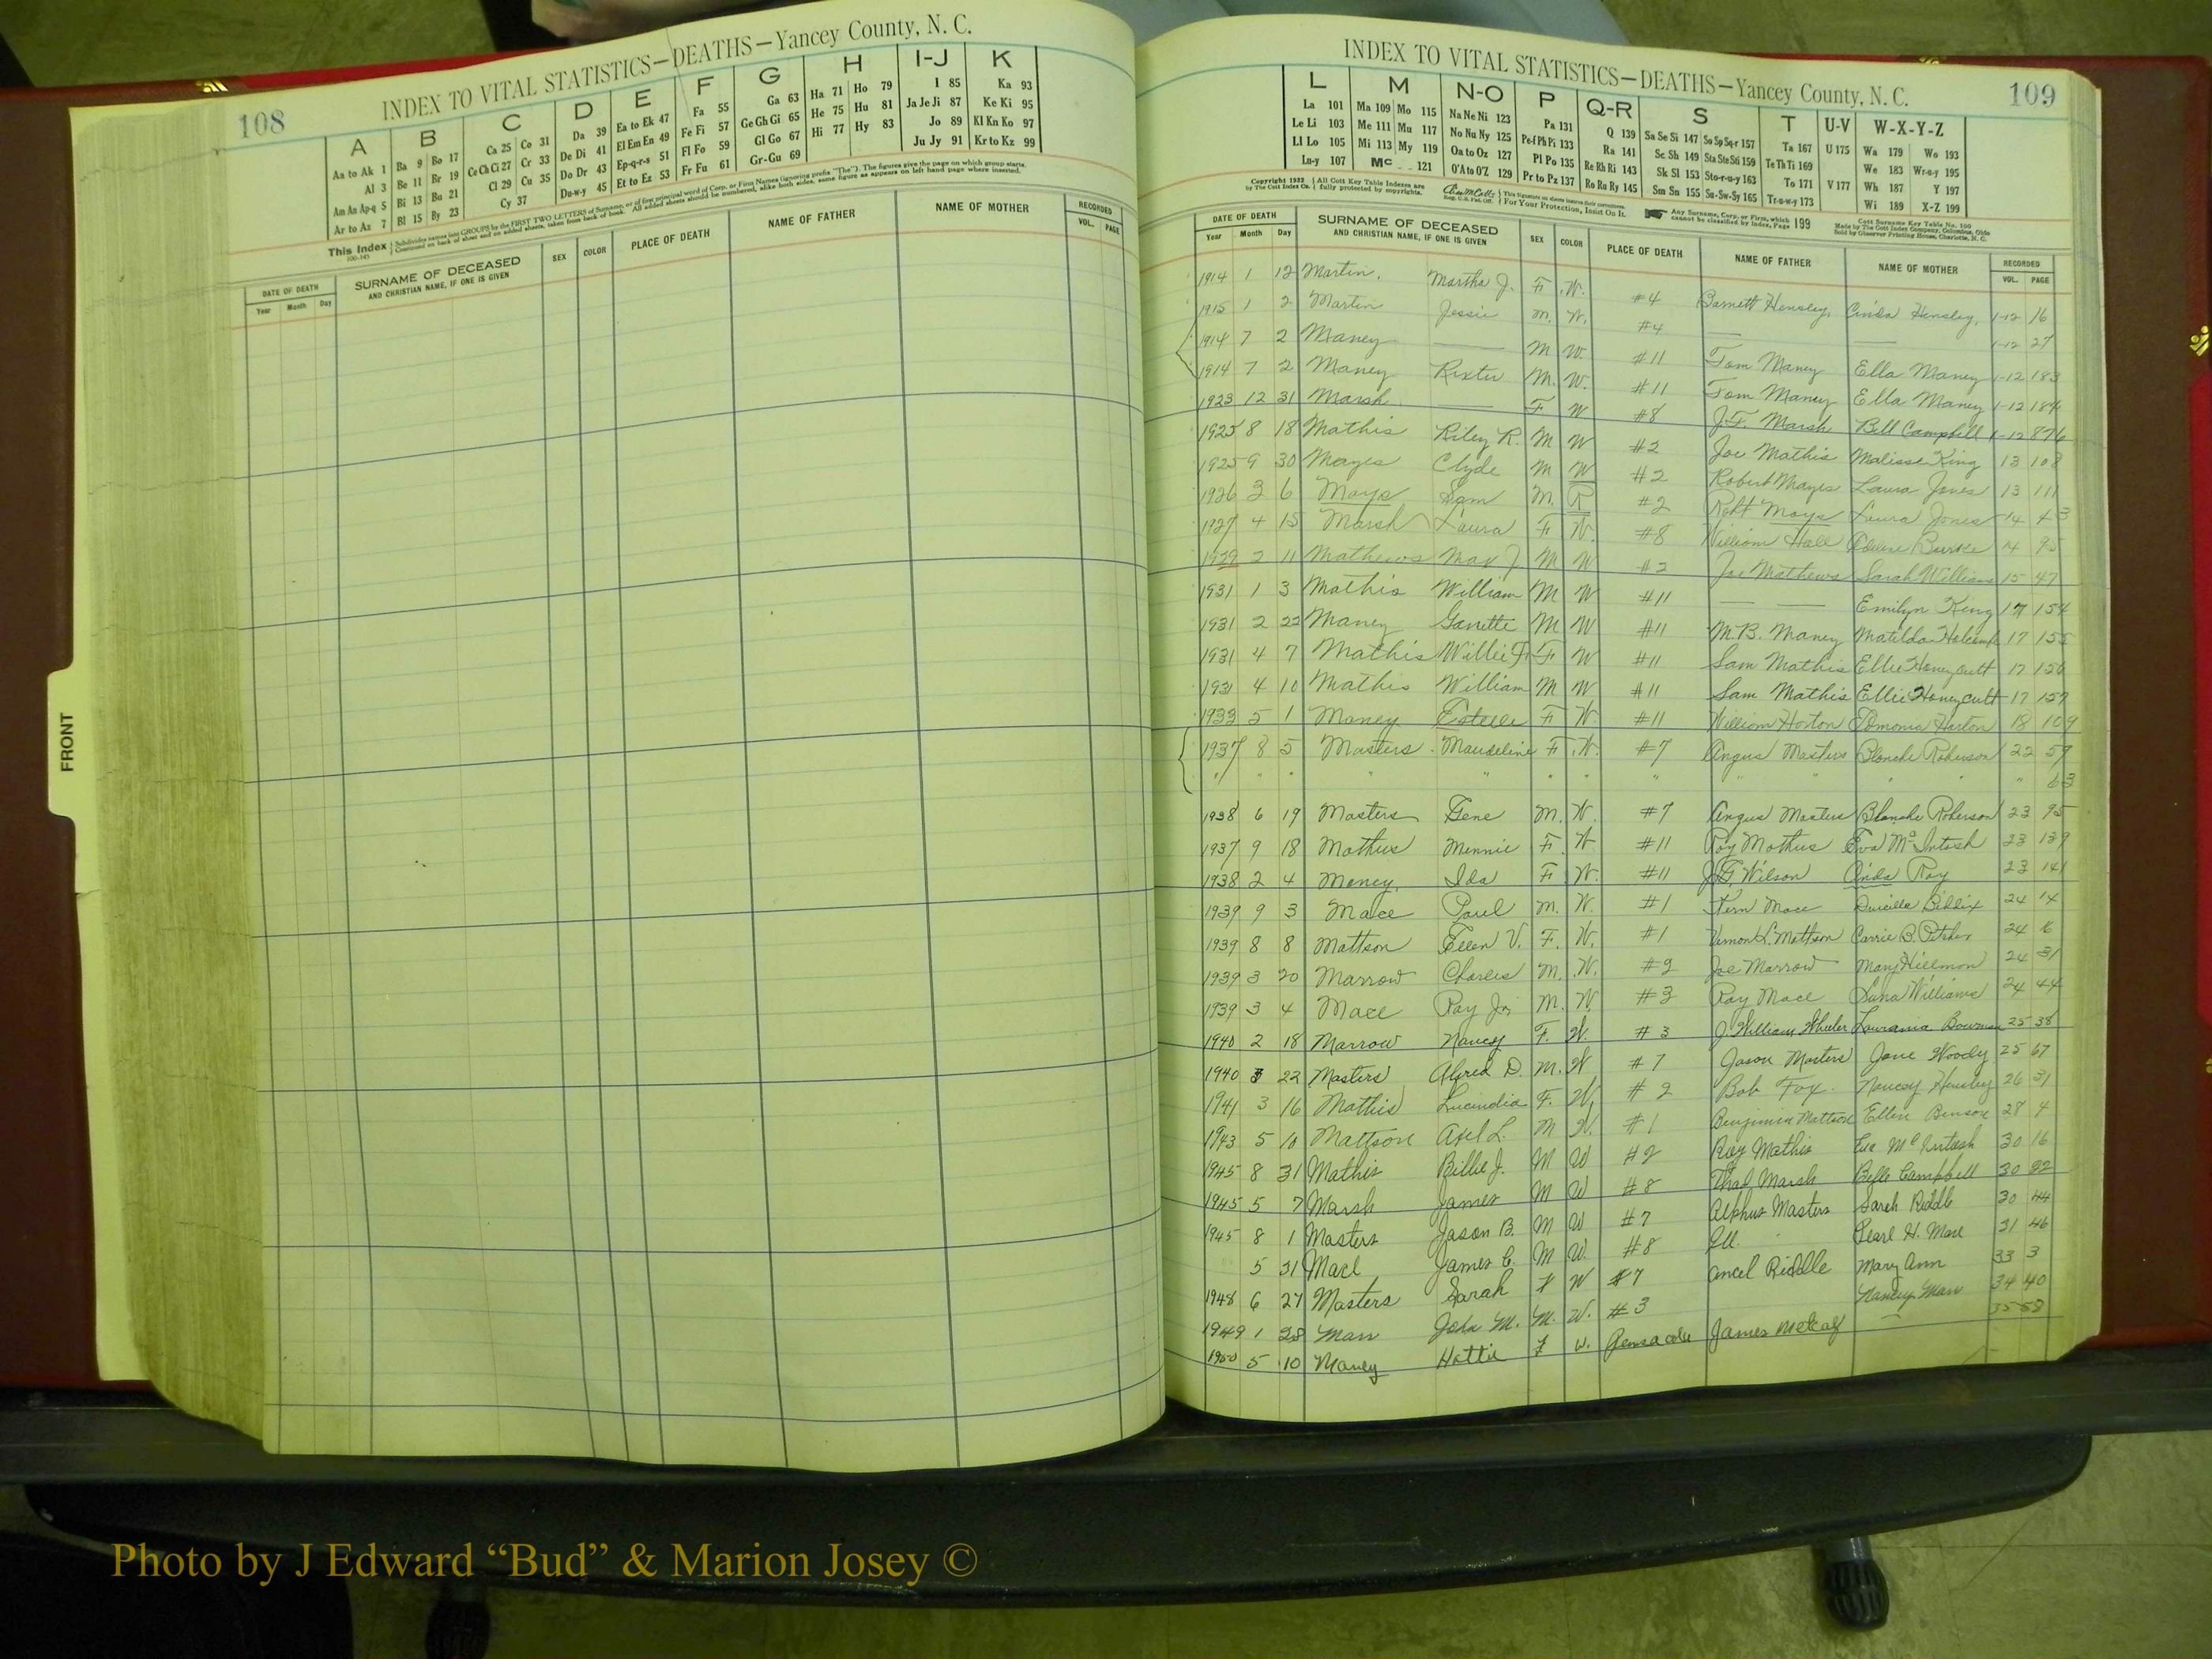 108
INDEX TO VITAL STATISTICS—DEATHS—Yancey County, N. C.
A B C D E F G H I-J K
Aa to Ak 1 Ba 9 Bo 17 Ca 25 Co 31 Da 39 Ea to Ek 47 Fa 55 Ga 63 Ha 71 Ho 79 I 85 Ka 93
Al 3 Be 11 Br 19 Ce Ch Ci 27 Cr 33 De Di 41 El Em En 49 Fe Fi 57 Ge Gh Gi 65 He 75 Hu 81 Ja Je Ji 87 Ke Ki 95
Am An Ap-q 5 Bi 13 Bu 21 Cl 29 Cu 35 Do Dr 43 Ep-q-r-s 51 Fl Fo 59 Gl Go 67 Hi 77 Hy 83 Jo 89 Kl Kn Ko 97
Ar to Az 7 Bl 15 By 23 Cy 37 Du-w-y 45 Et to Ez 53 Fr Fu 61 Gr-Gu 69 Ju Jy 91 Kr to Kz 99
This Index
DATE OF DEATH SURNAME OF DECEASED SEX COLOR PLACE OF DEATH NAME OF FATHER NAME OF MOTHER RECORDED
Year Month Day AND CHRISTIAN NAME, IF ONE IS GIVEN VOL. PAGE
FRONT
INDEX TO VITAL STATISTICS—DEATHS—Yancey County, N. C.
109
L M N-O P Q-R S T U-V W-X-Y-Z
La 101 Ma 109 Mo 115 Na Ne Ni 123 Pa 131 Q 139 Sa Se Si 147 So Sp Sq-r 157 Ta 167 U 175 Wa 179 Wo 193
Le Li 103 Me 111 Mu 117 No Nu Ny 125 Pe-f Ph Pi 133 Ra 141 Sc Sh 149 Sta Ste Sti 159 Te Th Ti 169 We 183 Wr-u-y 195
Ll Lo 105 Mi 113 My 119 Oa to Oz 127 Pl Po 135 Re Rh Ri 143 Sk Sl 153 Sto-r-u-y 163 To 171 V 177 Wh 187 Y 197
Lu-y 107 Mc 121 O'A to O'Z 129 Pr to Pz 137 Ro Ru Ry 145 Sm Sn 155 Su-Sw-Sy 165 Tr-u-w-y 173 Wi 189 X-Z 199
Copyright 1932 All Cott Key Table Indexes are
by The Cott Index Co. fully protected by copyrights. For Your Protection, Insist On It.
Any Surname, Corp. or Firm, which cannot be classified by Index, Page 199
Cott Surname Key Table No. 100
Made by The Cott Index Company, Columbus, Ohio
Sold by Observer Printing House, Charlotte, N. C.
DATE OF DEATH SURNAME OF DECEASED SEX COLOR PLACE OF DEATH NAME OF FATHER NAME OF MOTHER RECORDED
Year Month Day AND CHRISTIAN NAME, IF ONE IS GIVEN VOL. PAGE
1914 1 12 Martin, Martha J. F. W. #4 Barnett Hensley, Cinda Hensley, 1-12 16
1915 1 2 Martin Jessie M. W. #4 — — 1-12 27
1914 7 2 Maney — M W. #11 Tom Maney Ella Maney 1-12 183
1914 7 2 Maney Rixter M. W. #11 Tom Maney Ella Maney 1-12 184
1923 12 31 Marsh — F W #8 J.F. Marsh Bell Campbell 1-12 876
1925 8 18 Mathis Riley R. M W #2 Joe Mathis Malissa King 13 108
1925 9 30 Mayes Clyde M W #2 Robert Mayes Laura Jones 13 111
1926 3 6 Mays Sam M. R #2 Robt Mays Laura Jones 14 43
1927 4 15 Marsh Laura F W. #8 William Hall Burke 4 95
1929 2 11 Mathews Max J. M W #2 Joe Mathews Sarah Williams 15 47
1931 1 3 Mathis William M W #11 — — Emilyn King 17 154
1931 2 22 Maney Garrette M W #11 M.B. Maney Matilda Holcomb 17 155
1931 4 7 Mathis Willie F. F W #11 Sam Mathis Ellie Honeycutt 17 156
1931 4 10 Mathis William M W #11 Sam Mathis Ellie Honeycutt 17 157
1933 5 1 Maney Estelle F W. #11 William Horton Edmonia Horton 18 109
1937 8 5 Masters Maudeline F. W. #7 Angus Masters Blanche Roberson 22 59
" " " " " " " " " " " 63
1938 6 19 Masters Gene M. W. #7 Angus Masters Blanche Roberson 23 95
1937 9 18 Mathus Minnie F. W #11 Roy Mathus Eva McIntosh 23 139
1938 2 4 Maney, Ida F W. #11 J.G. Wilson Cinda Ray 23 141
1939 9 3 Mace Paul M. W. #1 Fern Mace Biddix 24 14
1939 8 8 Mattson Ellen V. F. W. #1 Vernon L. Mattson Carrie B. 24 6
1939 3 20 Marrow Charles M. W. #2 Joe Marrow Mary Hillmon 24 31
1939 3 4 Mace Ray Jr. M. W. #3 Ray Mace Luna Williams 24 44
1940 2 18 Marrow Nancy F. W. #3 J. William Wheeler Lourania Bowman 25 38
1940 3 22 Masters Alfred D. M. W #7 Jason Masters Jane Woody 25 67
1941 3 16 Mathis Lucindia F. W. #2 Bob Fox. Nancy Hensley 26 31
1943 5 10 Mattson Axel L. M W. #1 Benjimin Mattson Ellen Benson 28 4
1945 8 31 Mathis Billie J. M W #2 Roy Mathis Eva McIntosh 30 16
1945 5 7 Marsh James M W #8 Thad Marsh Belle Campbell 30 22
1945 8 1 Masters Jason B. M W #7 Alphus Masters Sarah Riddle 30 44
5 31 Mace James C. M W. #8 Ell. Pearl H. Mace 31 46
1948 6 27 Masters Sarah F W #7 Ancel Riddle Mary Ann 33 3
1949 1 28 Marr John M. M. W. #3 Nancy Marr 34 40
1950 5 10 Maney Hattie F W. Pensacola James Metcalf — 35 58
Photo by J Edward “Bud” & Marion Josey ©